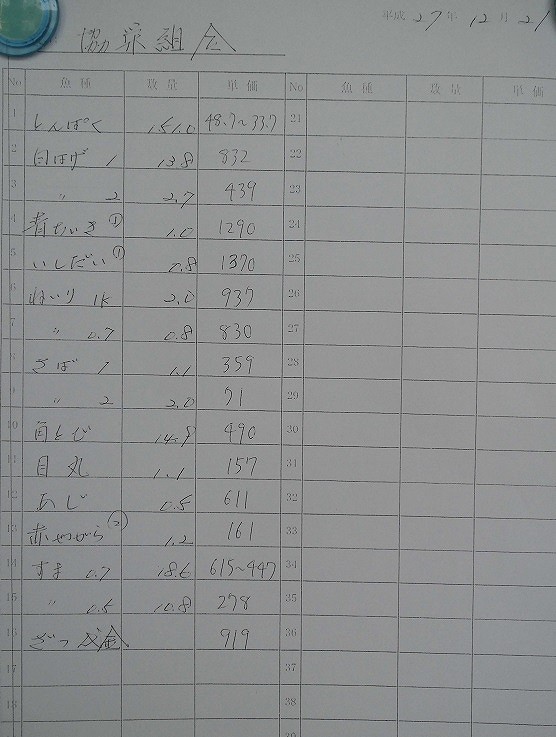 平成 27 年 12 月 21
協栄組合
No 魚種 数量 単価 No 魚種 数量 単価
1 とんぱく 151.0 48.7～33.7 21
2 白はげ 1 13.8 832 22
3 〃 2 2.7 439 23
4 青ちいき ① 1.0 1290 24
5 いしだい ① 0.8 1370 25
6 ねいり 1K 2.0 937 26
7 〃 0.7 0.8 830 27
8 さば 1 1.1 359 28
9 〃 2 2.0 71 29
10 角とび 14.9 490 30
11 目丸 1.1 157 31
12 あじ 0.5 611 32
13 赤やがら ② 1.2 161 33
14 すま 0.7 18.6 615～447 34
15 〃 0.5 10.8 278 35
16 ざつ 919 36
17 37
18 38
39